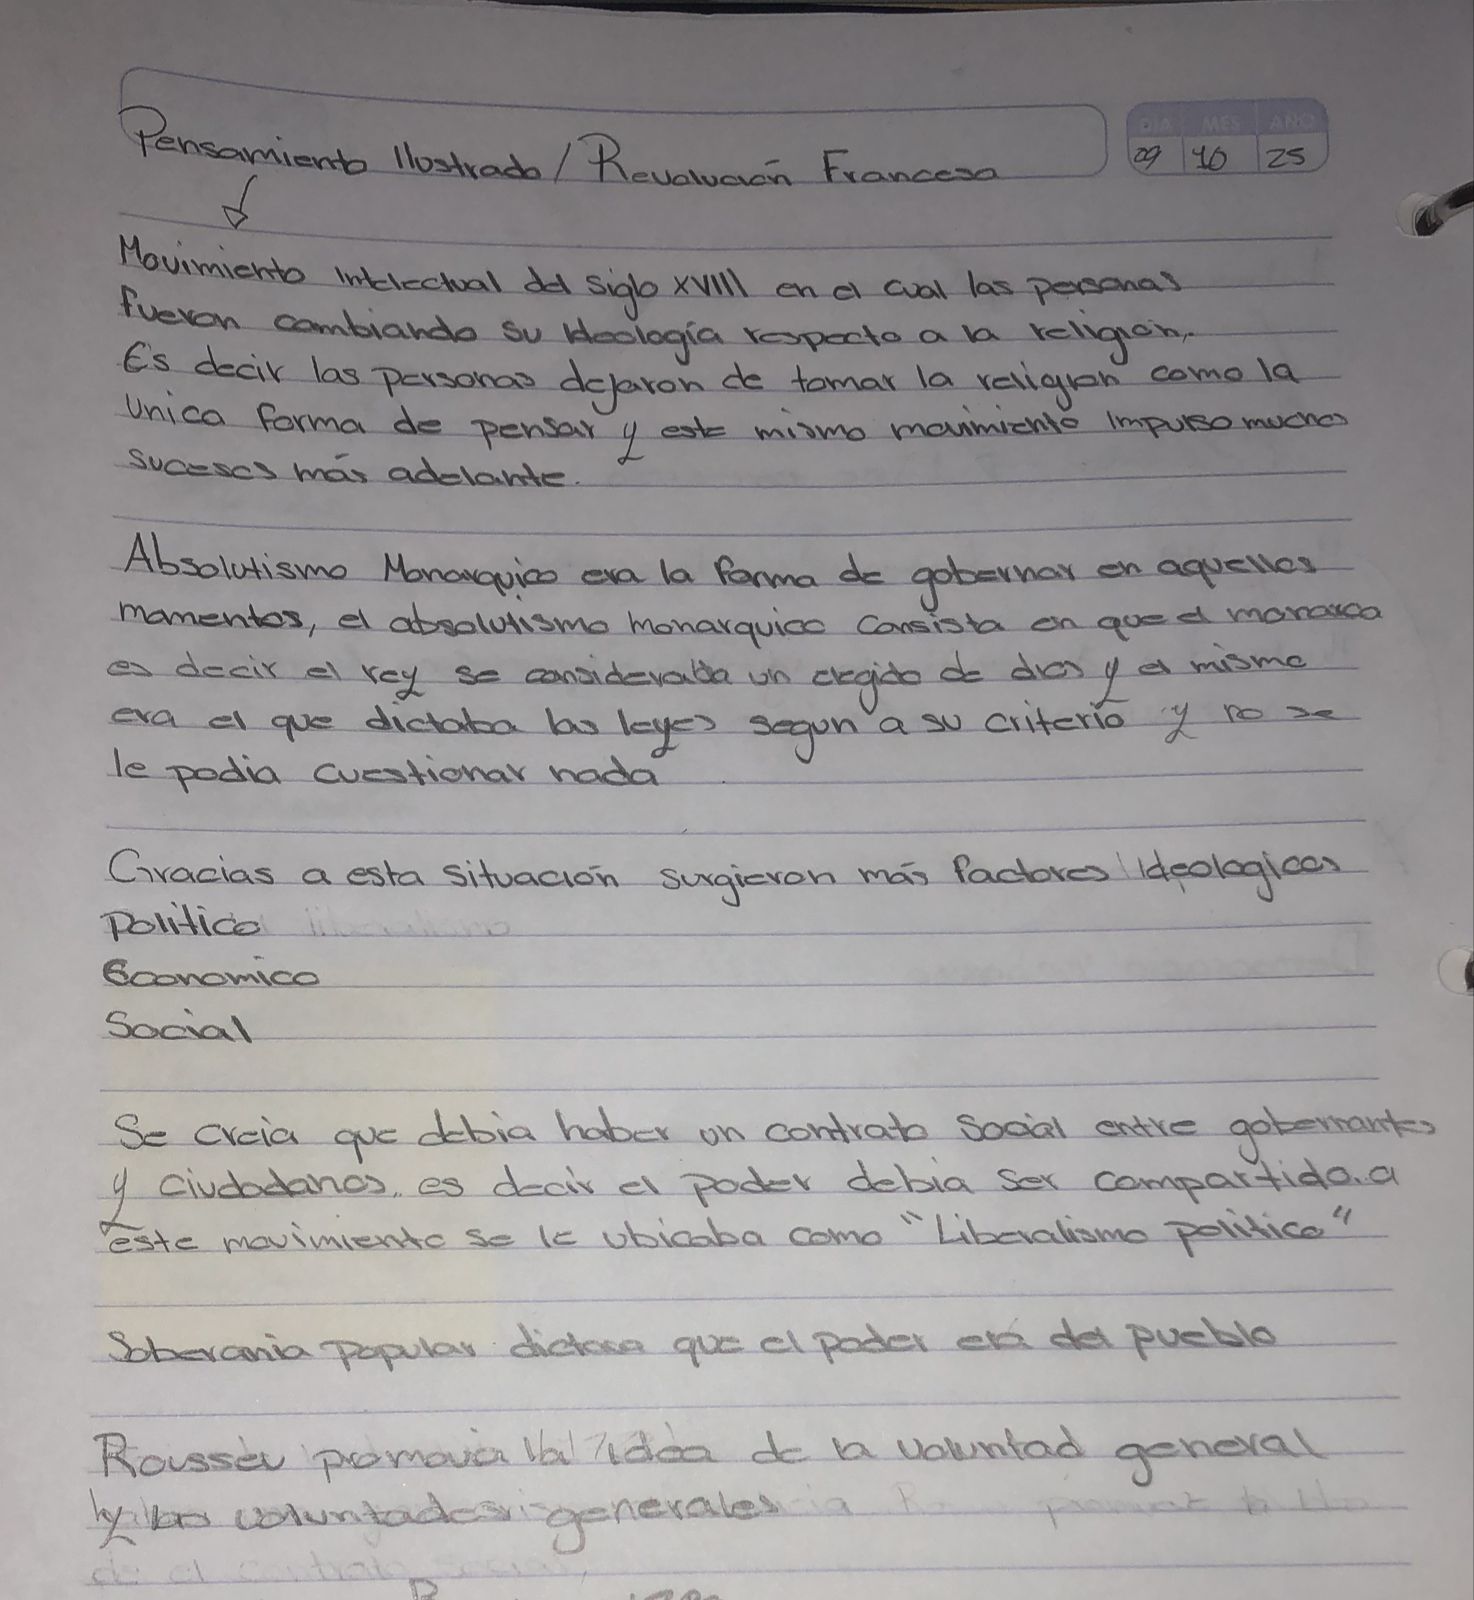 Pensamiento Ilustrado / Revolución Francesa
DIA MES AÑO
29 10 25
Movimiento intelectual del siglo XVIII en el cual las personas
fueron cambiando su ideología respecto a la religión.
Es decir las personas dejaron de tomar la religion como la
unica forma de pensar y este mismo movimiento impulso muchos
sucesos más adelante.
Absolutismo Monarquico era la forma de gobernar en aquellos
momentos, el absolutismo monarquico consistia en que el monarca
es decir el rey se consideraba un elegido de dios y el mismo
era el que dictaba las leyes segun a su criterio y no se
le podia cuestionar nada
Gracias a esta situación surgieron más factores ideologicos
Politico
Economico
Social
Se creia que debia haber un contrato social entre gobernantes
y ciudadanos, es decir el poder debia ser compartido. a
este movimiento se le ubicaba como "Liberalismo politico"
Soberania popular que el poder era del pueblo
promovia la idea de la voluntad general
y las voluntades generales